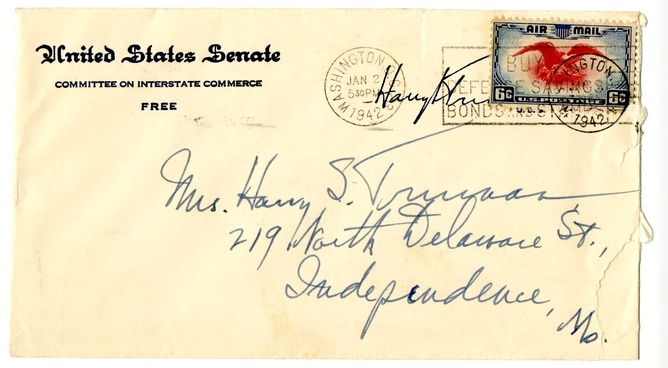 United States Senate
COMMITTEE ON INTERSTATE COMMERCE
FREE
WASHINGTON
JAN 2
5 30 PM
1942
Harry S Truman
BUY
DEFENSE SAVINGS
BONDS AND STAMPS
AIR MAIL
6¢ 6¢
WASHINGTON
1942
Mrs. Harry S. Truman
219 North Delaware St.,
Independence,
Mo.